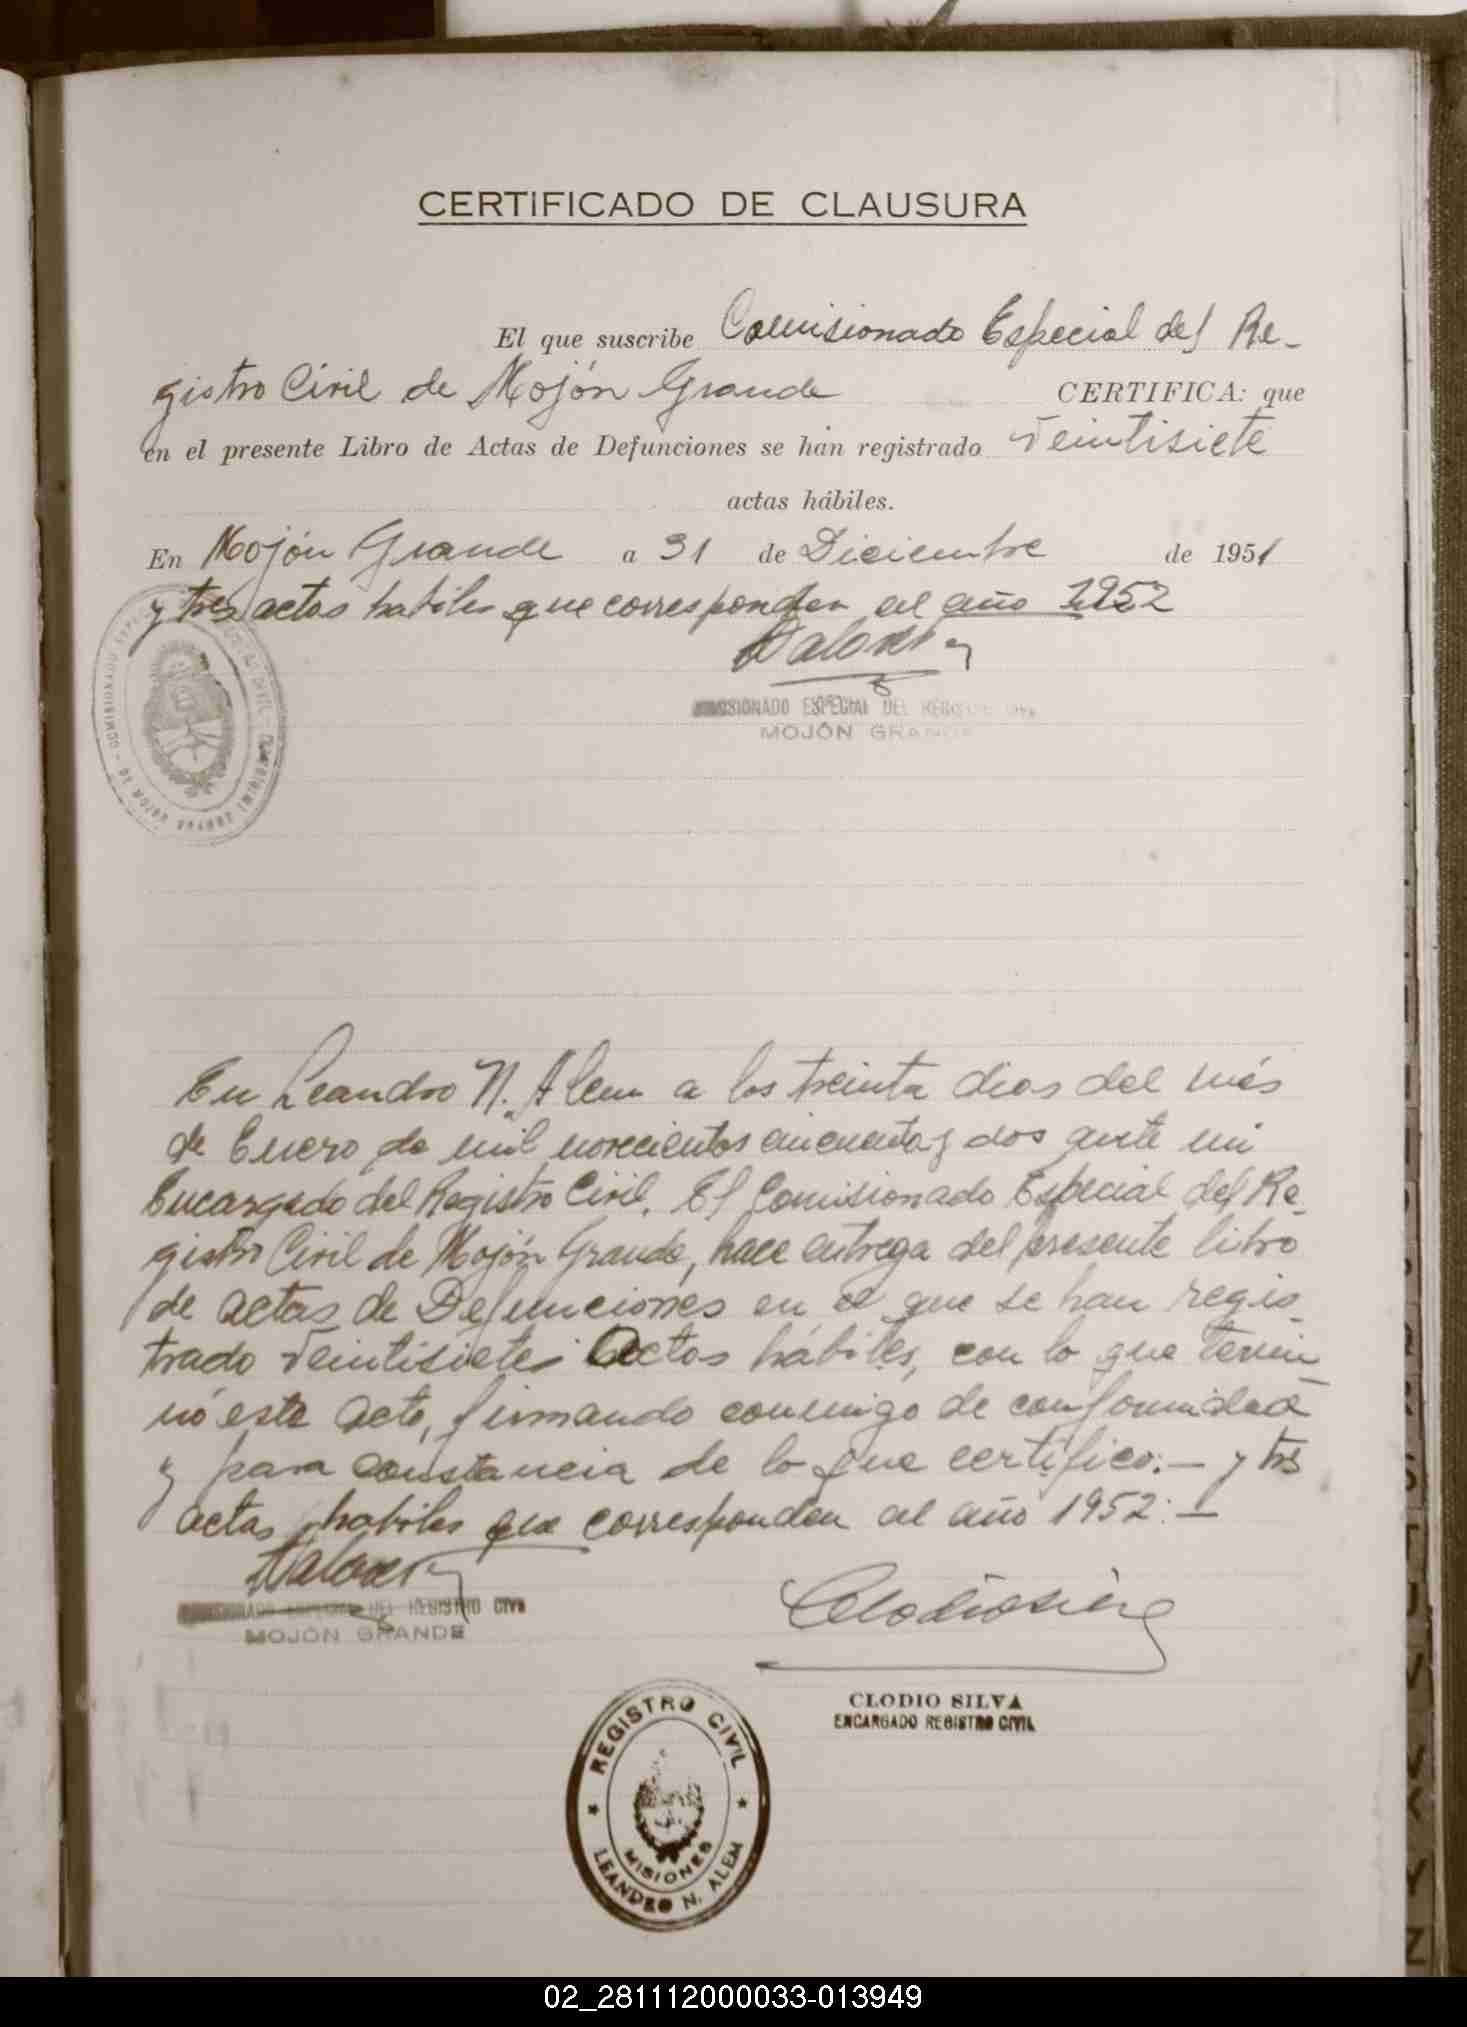 CERTIFICADO DE CLAUSURA
El que suscribe Comisionado Especial del Re-
gistro Civil de Mojón Grande CERTIFICA: que
en el presente Libro de Actas de Defunciones se han registrado veintisiete
actas hábiles.
En Mojón Grande a 31 de Diciembre de 1951
y tres actas habiles que corresponden al año 1952
COMISIONADO ESPECIAL DEL REGISTRO CIVIL
MOJÓN GRANDE
En Leandro N. Alem a los treinta dias del més
de Enero de mil novecientos cincuenta y dos ante mi
Encargado del Registro Civil. El Comisionado Especial del Re-
gistro Civil de Mojón Grande, hace entrega del presente libro
de actas de Defunciones en el que se han regis-
trado veintisiete Actas hábiles, con lo que termi-
nó este acto, firmando conmigo de conformidad
y para constancia de lo que certifico:- y tres
actas habiles que corresponden al año 1952:-
COMISIONADO ESPECIAL DEL REGISTRO CIVIL
MOJÓN GRANDE
Clodio Silva
CLODIO SILVA
ENCARGADO REGISTRO CIVIL
REGISTRO CIVIL
MISIONES
LEANDRO N. ALEM
02_281112000033-013949